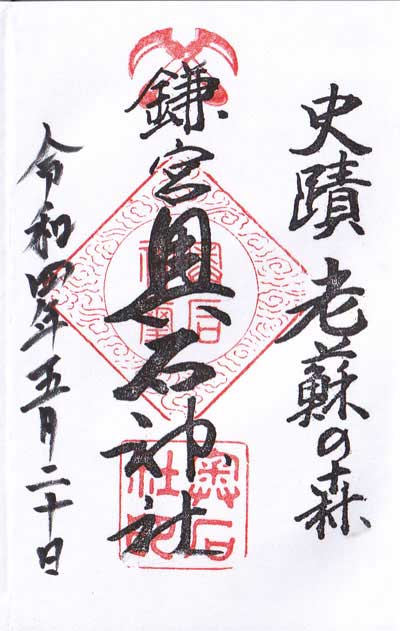 史蹟 老蘇の森
鎌宮奥石神社
令和四年五月二十日
奥石
社印